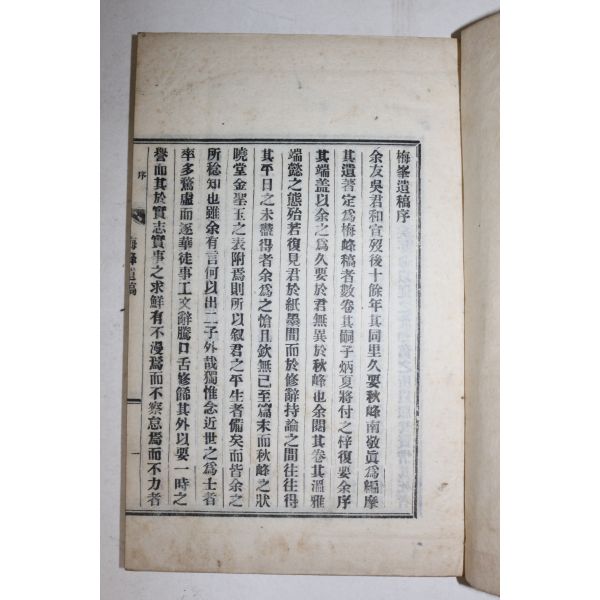 梅峯遺稿序
余友吳君和宣歿後十餘年其同里久要秋峰南敬眞爲編摩
其遺著定爲梅峰稿者數卷其嗣子炳夏將付之梓復要余序
其端盖以余之爲久要於君無異於秋峰也余閱其卷其溫雅
端懿之態殆若復見君於紙墨間而於修辭持論之間往往得
其平日之未盡得者余爲之愴且欽無已至篇末而秋峰之狀
曉堂金聖玉之表附焉則所以叙君之平生者備矣而皆余之
所稔知也雖余有言何以出二子外哉獨惟念近世之爲士者
率多騖虛而逐華徒事工文辭騰口舌修餙其外以要一時之
譽而其於實志實事之求鮮有不漫焉而不察怠焉而不力者
梅峰遺稿
序
一